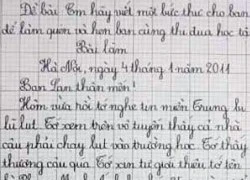 Đề bài: Em hãy viết một bức thư cho bạn
để làm quen và hẹn bạn cùng thi đua học tậ
Bài làm
Hà Nội, ngày 4 tháng 1 năm 2011
Bạn Lan thân mến!
Hôm vừa rồi tớ nghe tin miền Trung bị
lũ lụt. Tớ xem trên vô tuyến thấy cả nhà
cậu phải chạy lụt vào trường học. Tớ thấy
thương cậu quá. Tớ xin tự giới thiệu tớ tên